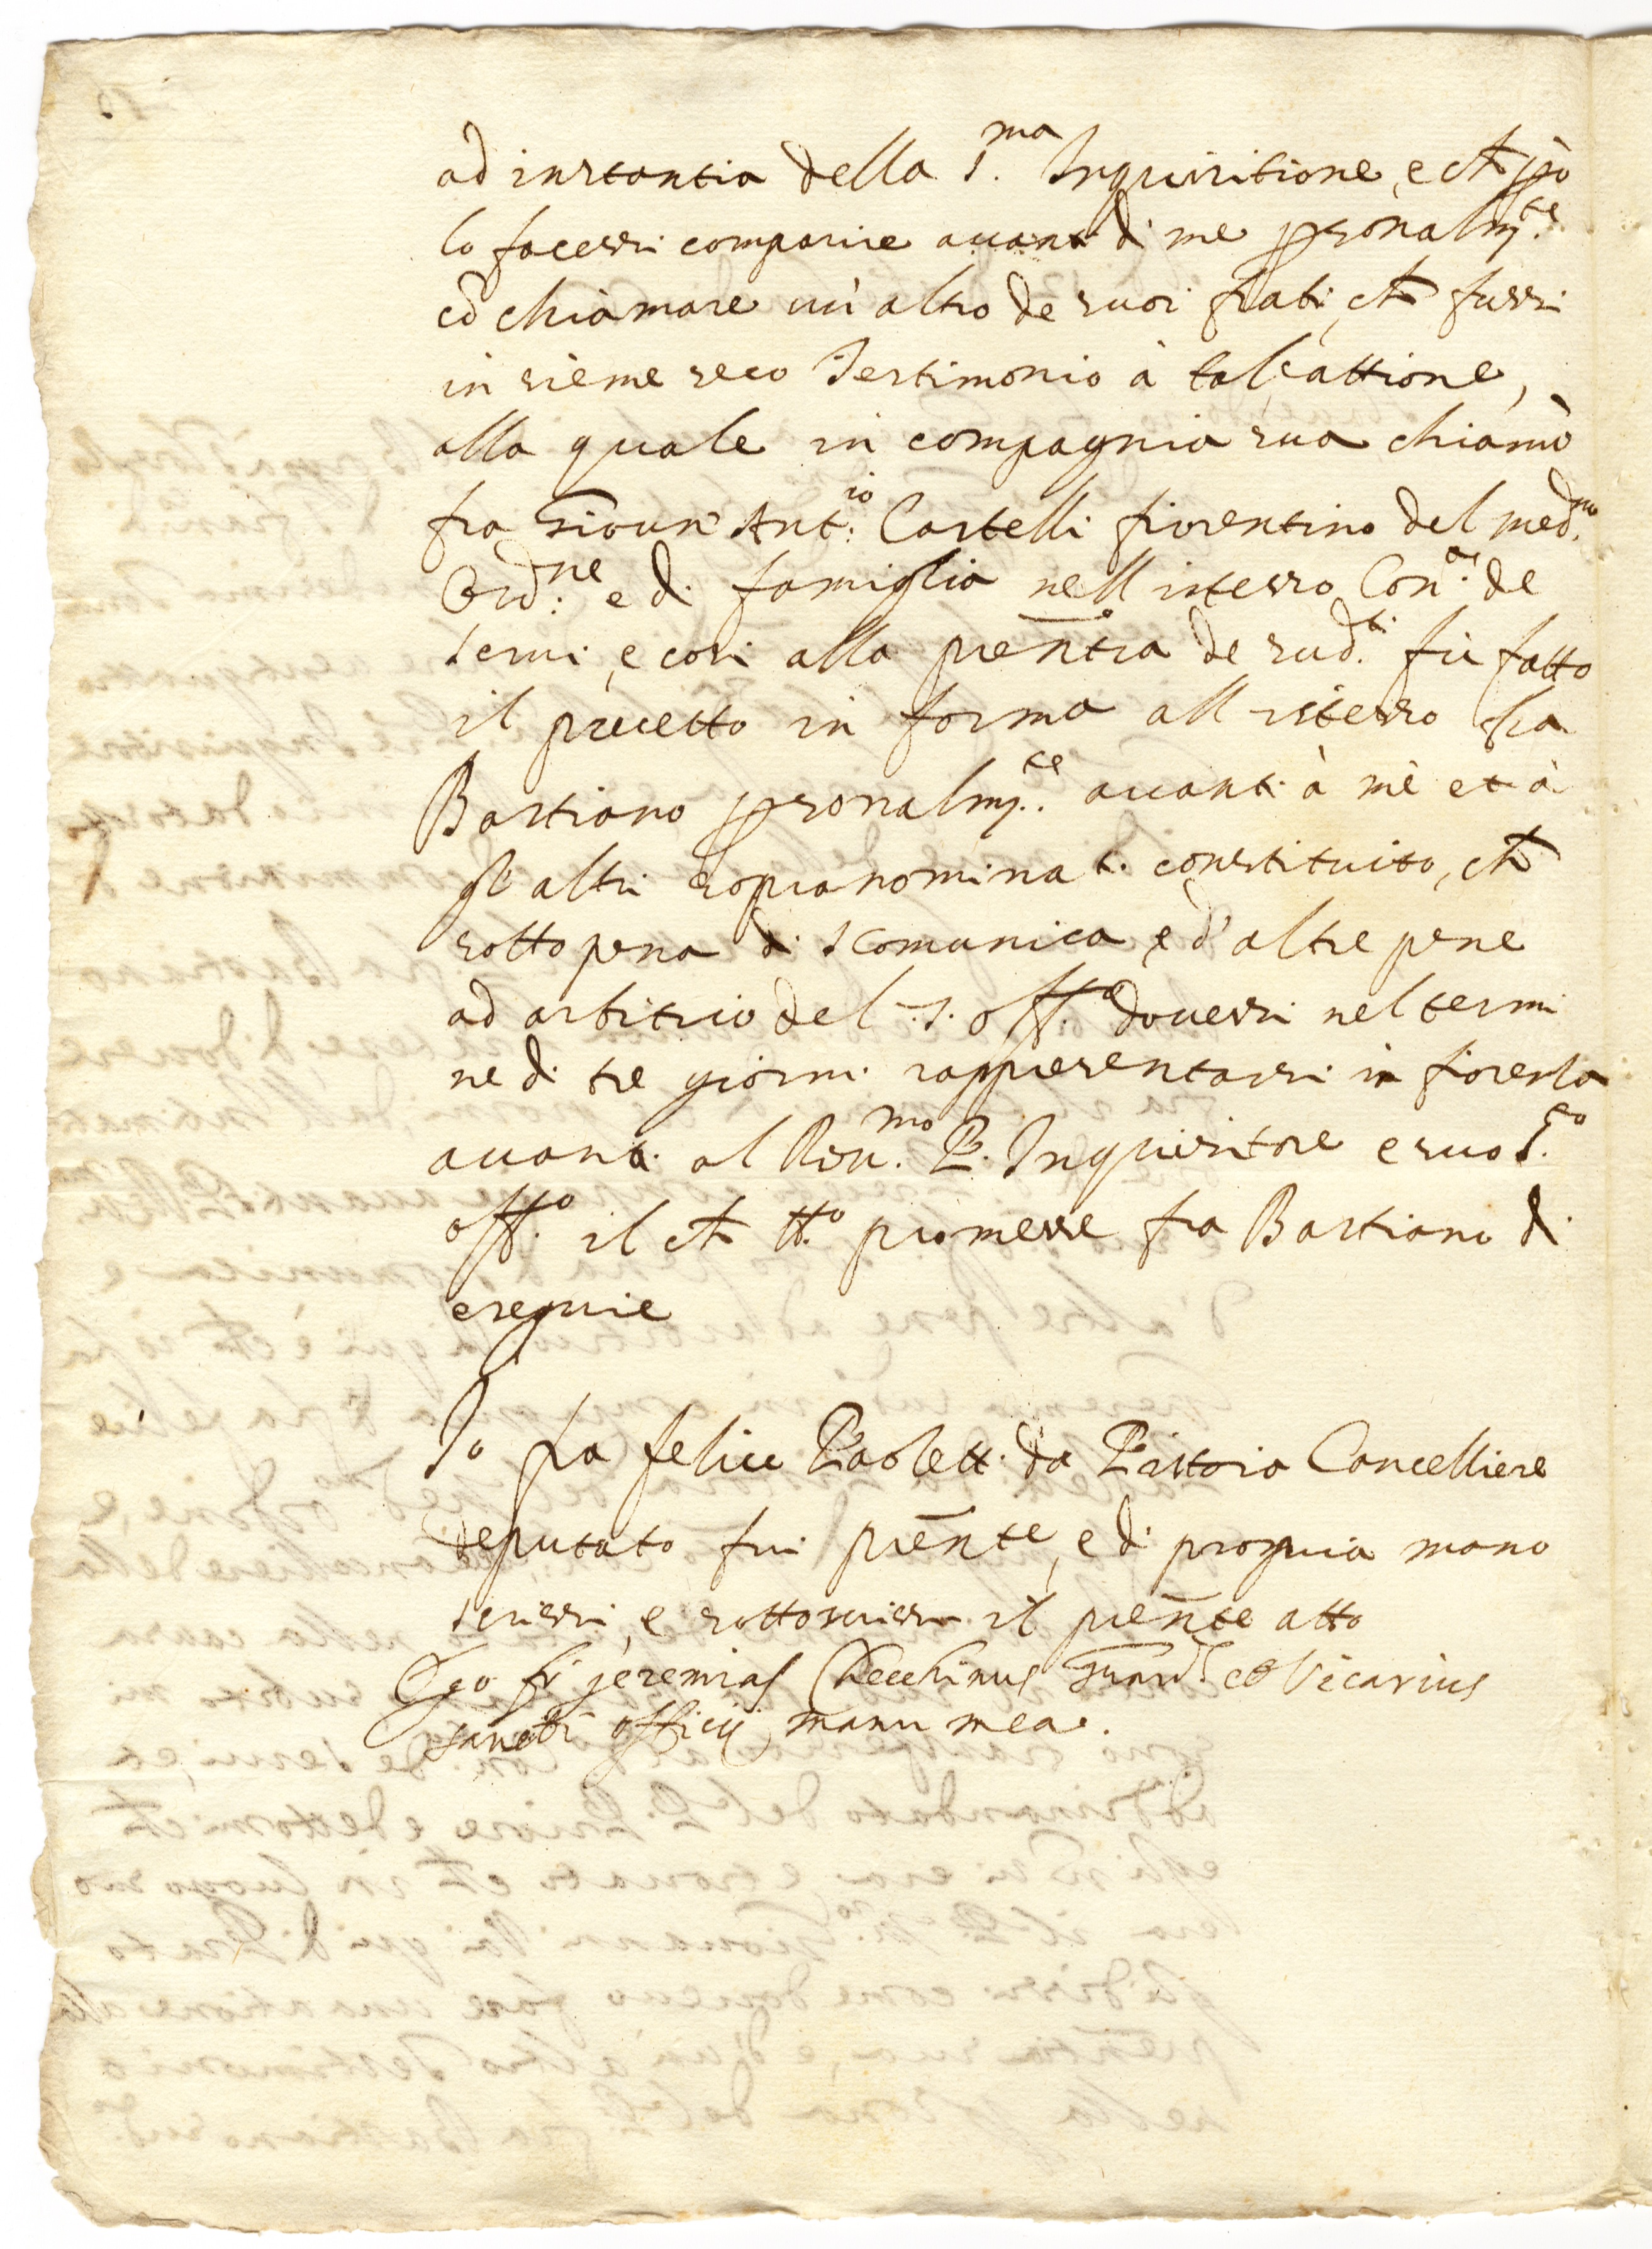 ad instantia della S.ma Inquisitione, e ch pò
lo facessi comparire auanti di me psonalm.te
cō chiamare un'altro de suoi frati, ch fussi
insieme seco Testimonio à tal'attione,
alla quale in compagnia sua chiamò
fra Giouan Ant.io Castelli fiorentino del med.mo
Ord.ne e di famiglia nell'istesso Con.o de
Serui, e così alla pr̄entia de sud.ti fù fatto
il precetto in forma all'istesso fra
Bastiano psonalm.te auanti à mè et à
gl'altri sopranominati constituito, ch
sotto pena di scomunica, e d'altre pene
ad arbitrio del S. Off.o douessi nel termi
ne di tre giorni rappresentarsi in fiorenza
auanti al Reu.mo P. Inquisitore e suo S.to
Off.o il ch tt.o promesse fra Bastiano di
exeguire
Io fra felice Paoletti da Pistoia Cancelliere
deputato fui pr̄ente, e di propria mano
scrissi, e sottoscrissi il pr̄ente atto
Ego fr. Jeremias Checchinus Guard.s et Vicarius
sancti officij manu mea.